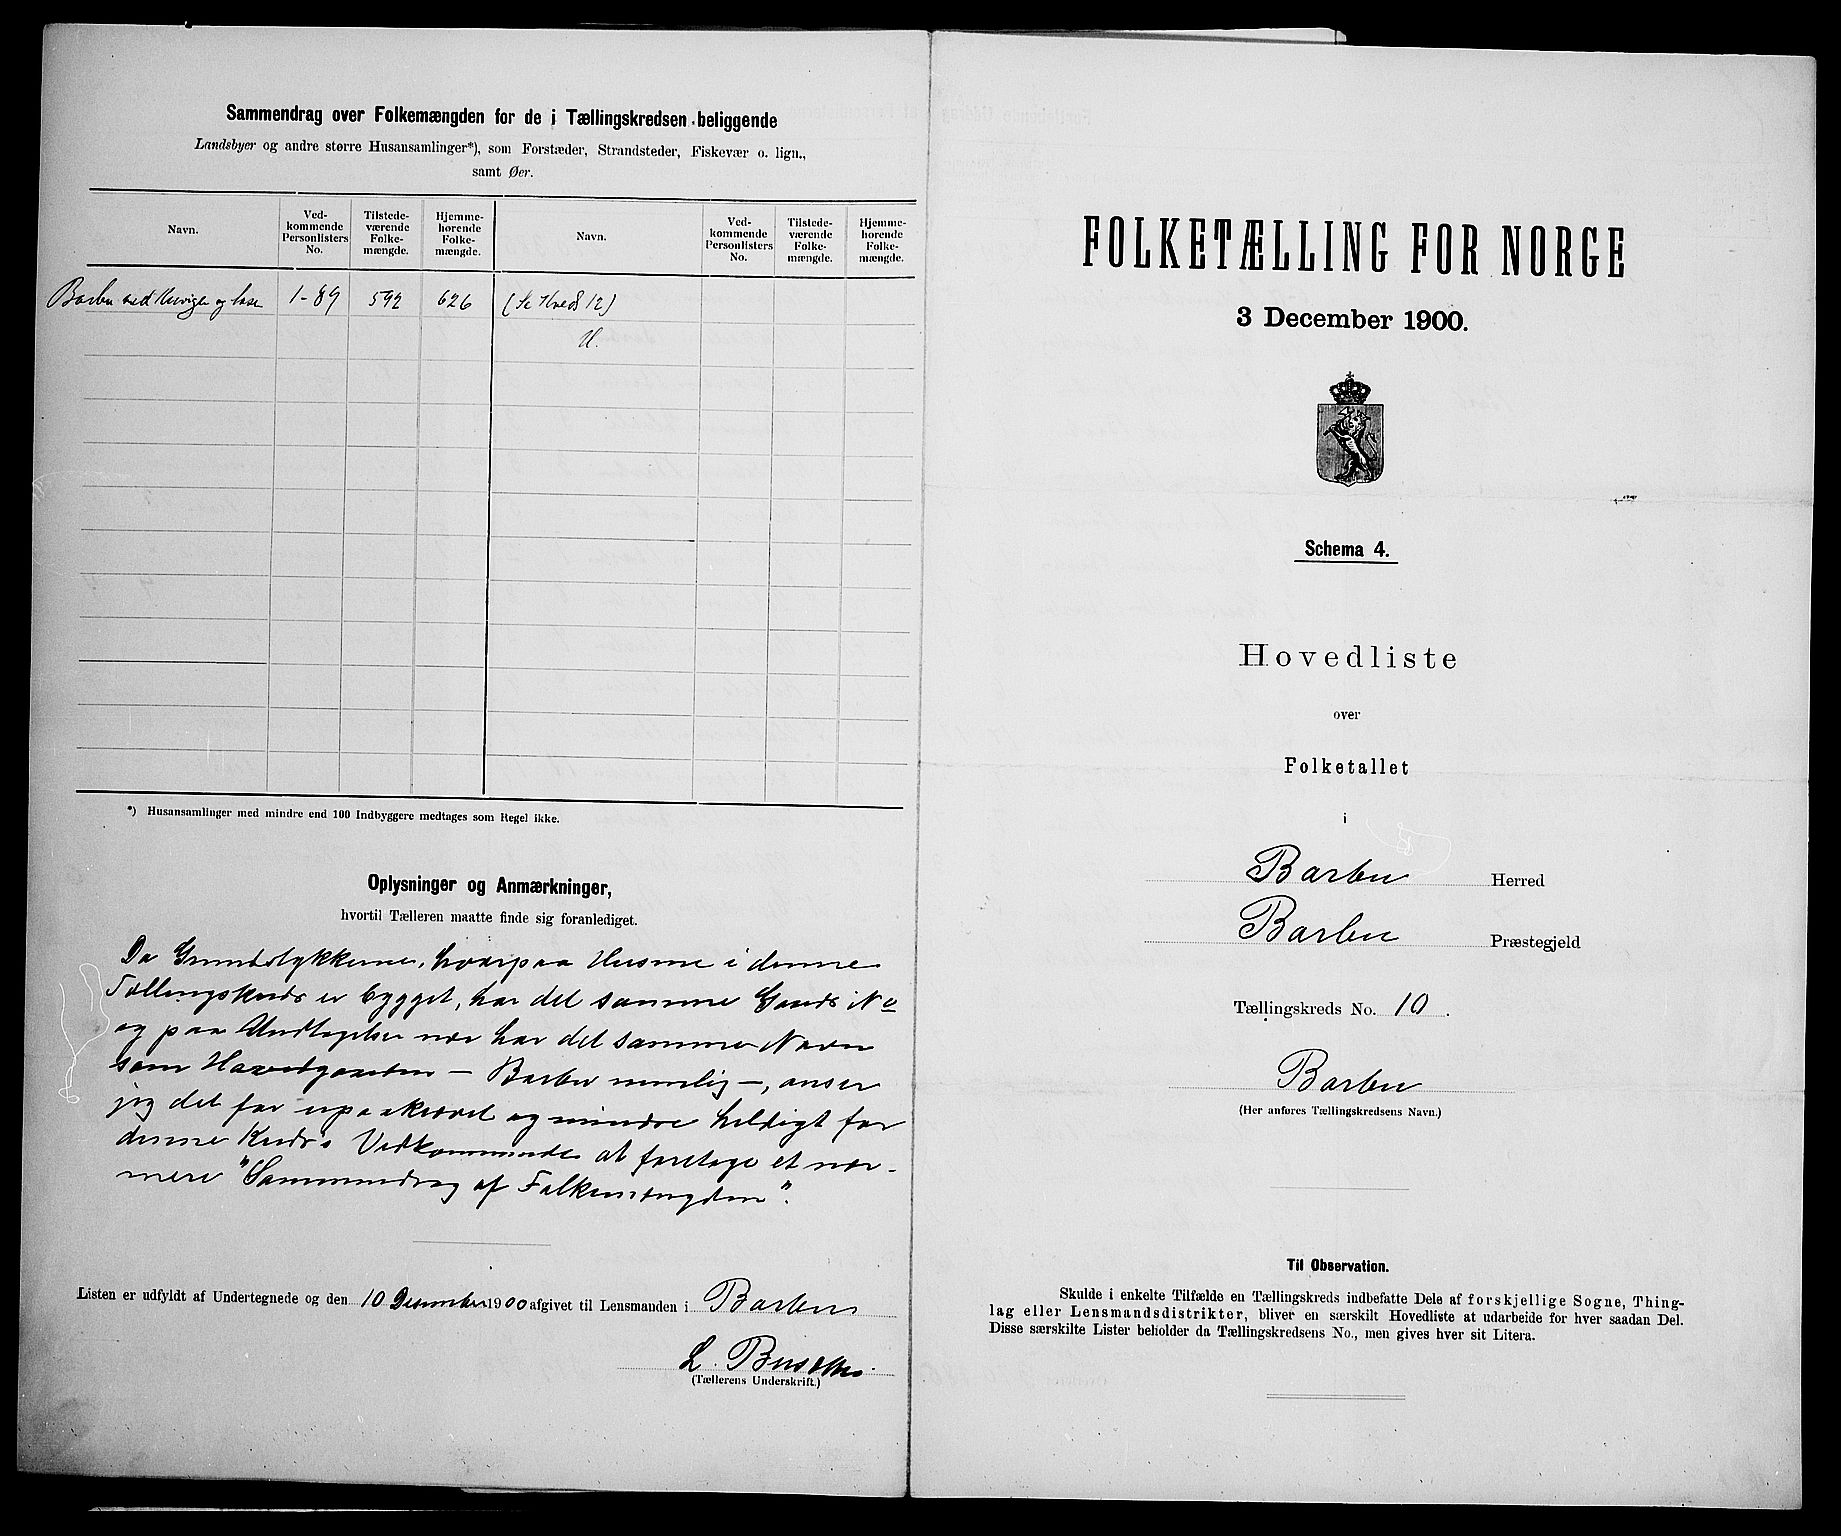 Sammendrag over Folkemængden for de i Tællingskredsen beliggende
Landsbyer og andre større Husansamlinger*), som Forstæder, Strandsteder, Fiskevær o. lign.,
samt Øer.
Navn. Ved-kommende Personlisters No. Tilstede-værende Folke-mængde. Hjemme-hørende Folke-mængde. Navn. Ved-kommende Personlisters No. Tilstede-værende Folke-mængde. Hjemme-hørende Folke-mængde.
Barbu med og 1-89 592 626 (Se Kreds 12)
*) Husansamlinger med mindre end 100 Indbyggere medtages som Regel ikke.
Oplysninger og Anmærkninger,
hvortil Tælleren maatte finde sig foranlediget.
Da Grundstykkerne, hvorpaa Husene i denne
Tællingskreds er bygget, har det samme Gaards No
og paa Undtagelser nær har det samme Navn
som Hovedgaarden – Barbu nemlig –, anser
jeg det for upaakrævet og mindre heldigt for
denne Kreds's Vedkommende at foretage et nær-
mere "Sammendrag af Folkemængden".
Listen er udfyldt af Undertegnede og den 10 December 1900 afgivet til Lensmanden i Barbu
L.
(Tællerens Underskrift.)
FOLKETÆLLING FOR NORGE
3 December 1900.
Schema 4.
Hovedliste
over
Folketallet
i
Barbu Herred
Barbu Præstegjeld
Tællingskreds No. 10.
Barbu
(Her anføres Tællingskredsens Navn.)
Til Observation.
Skulde i enkelte Tilfælde en Tællingskreds indbefatte Dele af forskjellige Sogne, Thing-
lag eller Lensmandsdistrikter, bliver en særskilt Hovedliste at udarbeide for hver saadan Del.
Disse særskilte Lister beholder da Tællingskredsens No., men gives hver sit Litera.